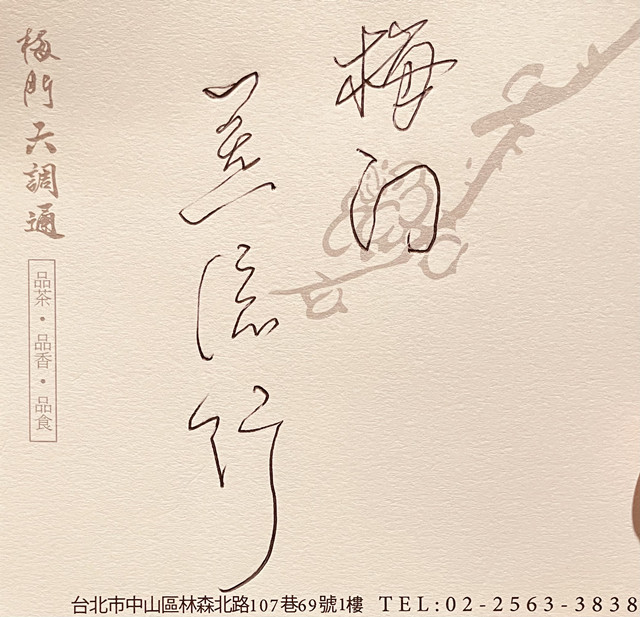 梅門
一炁流行
梅門六調通
品茶・品香・品食
台北市中山區林森北路107巷69號1樓 TEL:02-2563-3838